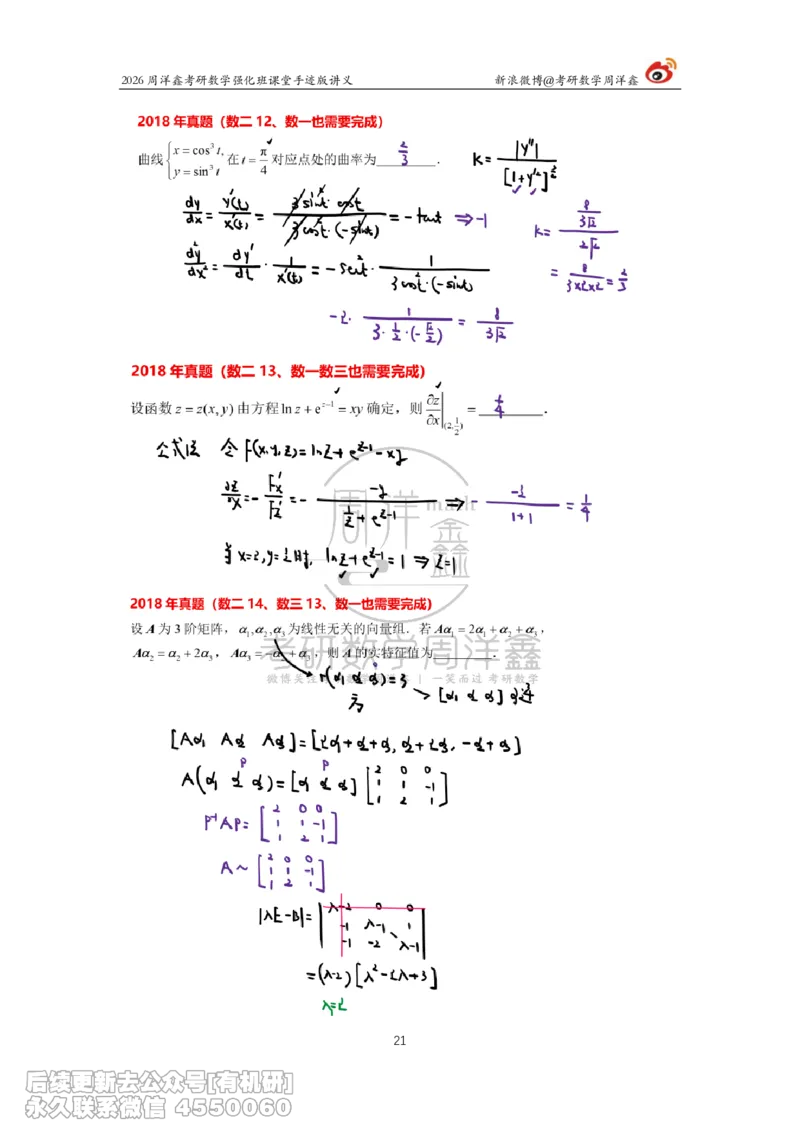 2026 周洋鑫考研数学强化班课堂手迹版讲义 新浪微博@考研数学周洋鑫
2018 年真题（数二 12、数一也需要完成）
曲线 { x = cos³ t, y = sin³ t 在 t = π/4 对应点处的曲率为 2/3 .
K = |y''| / [1+y'²]^(3/2)
dy/dx = y'(t)/x'(t) = 3sin²t·cost / 3cos²t·(-sint) = -tant ⇒ -1
d²y/dx² = dy'/dt · 1/x'(t) = -sec²t · 1/(3cos²t·(-sint))
-2· 1/(3·1/2·(-√2/2)) = 8/(3√2)
K = (8/(3√2)) / (2√2)
= 8/(3×2×2) = 2/3
2018 年真题（数二 13、数一数三也需要完成）
设函数 z = z(x, y) 由方程 ln z + e^(z−1) = xy 确定，则 ∂z/∂x |(2, 1/2) = 1/4 .
公式法 令 F(x,y,z) = lnz + e^(z-1) - xy
∂z/∂x = - Fx'/Fz' = - (-y)/(1/z + e^(z-1)) ⇒ - (-1/2)/(1+1) = 1/4
当 x=2, y=1/2 时, lnz + e^(z-1) = 1 ⇒ z=1
2018 年真题（数二 14、数三 13、数一也需要完成）
设 A 为 3 阶矩阵，α₁,α₂,α₃ 为线性无关的向量组．若 Aα₁ = 2α₁ + α₂ + α₃，
Aα₂ = α₂ + 2α₃，Aα₃ = −α₂ + α₃，则 A 的实特征值为 ________．
r(α₁ α₂ α₃) = 3 → [α₁ α₂ α₃] 可逆
[Aα₁ Aα₂ Aα₃] = [2α₁+α₂+α₃, α₂+2α₃, -α₂+α₃]
P P
A(α₁ α₂ α₃) = [α₁ α₂ α₃] [2 0 0; 1 1 -1; 1 2 1]
P⁻¹AP = [2 0 0; 1 1 -1; 1 2 1]
A ~ [2 0 0; 1 1 -1; 1 2 1]
|λE-B| = |λ-2 0 0; -1 λ-1 1; -1 -2 λ-1|
= (λ-2)[λ²-2λ+3]
λ=2
周洋鑫
考研数学周洋鑫
一笑而过 考研数学
21
后续更新去公众号[有机研]
永久联系微信 4550060